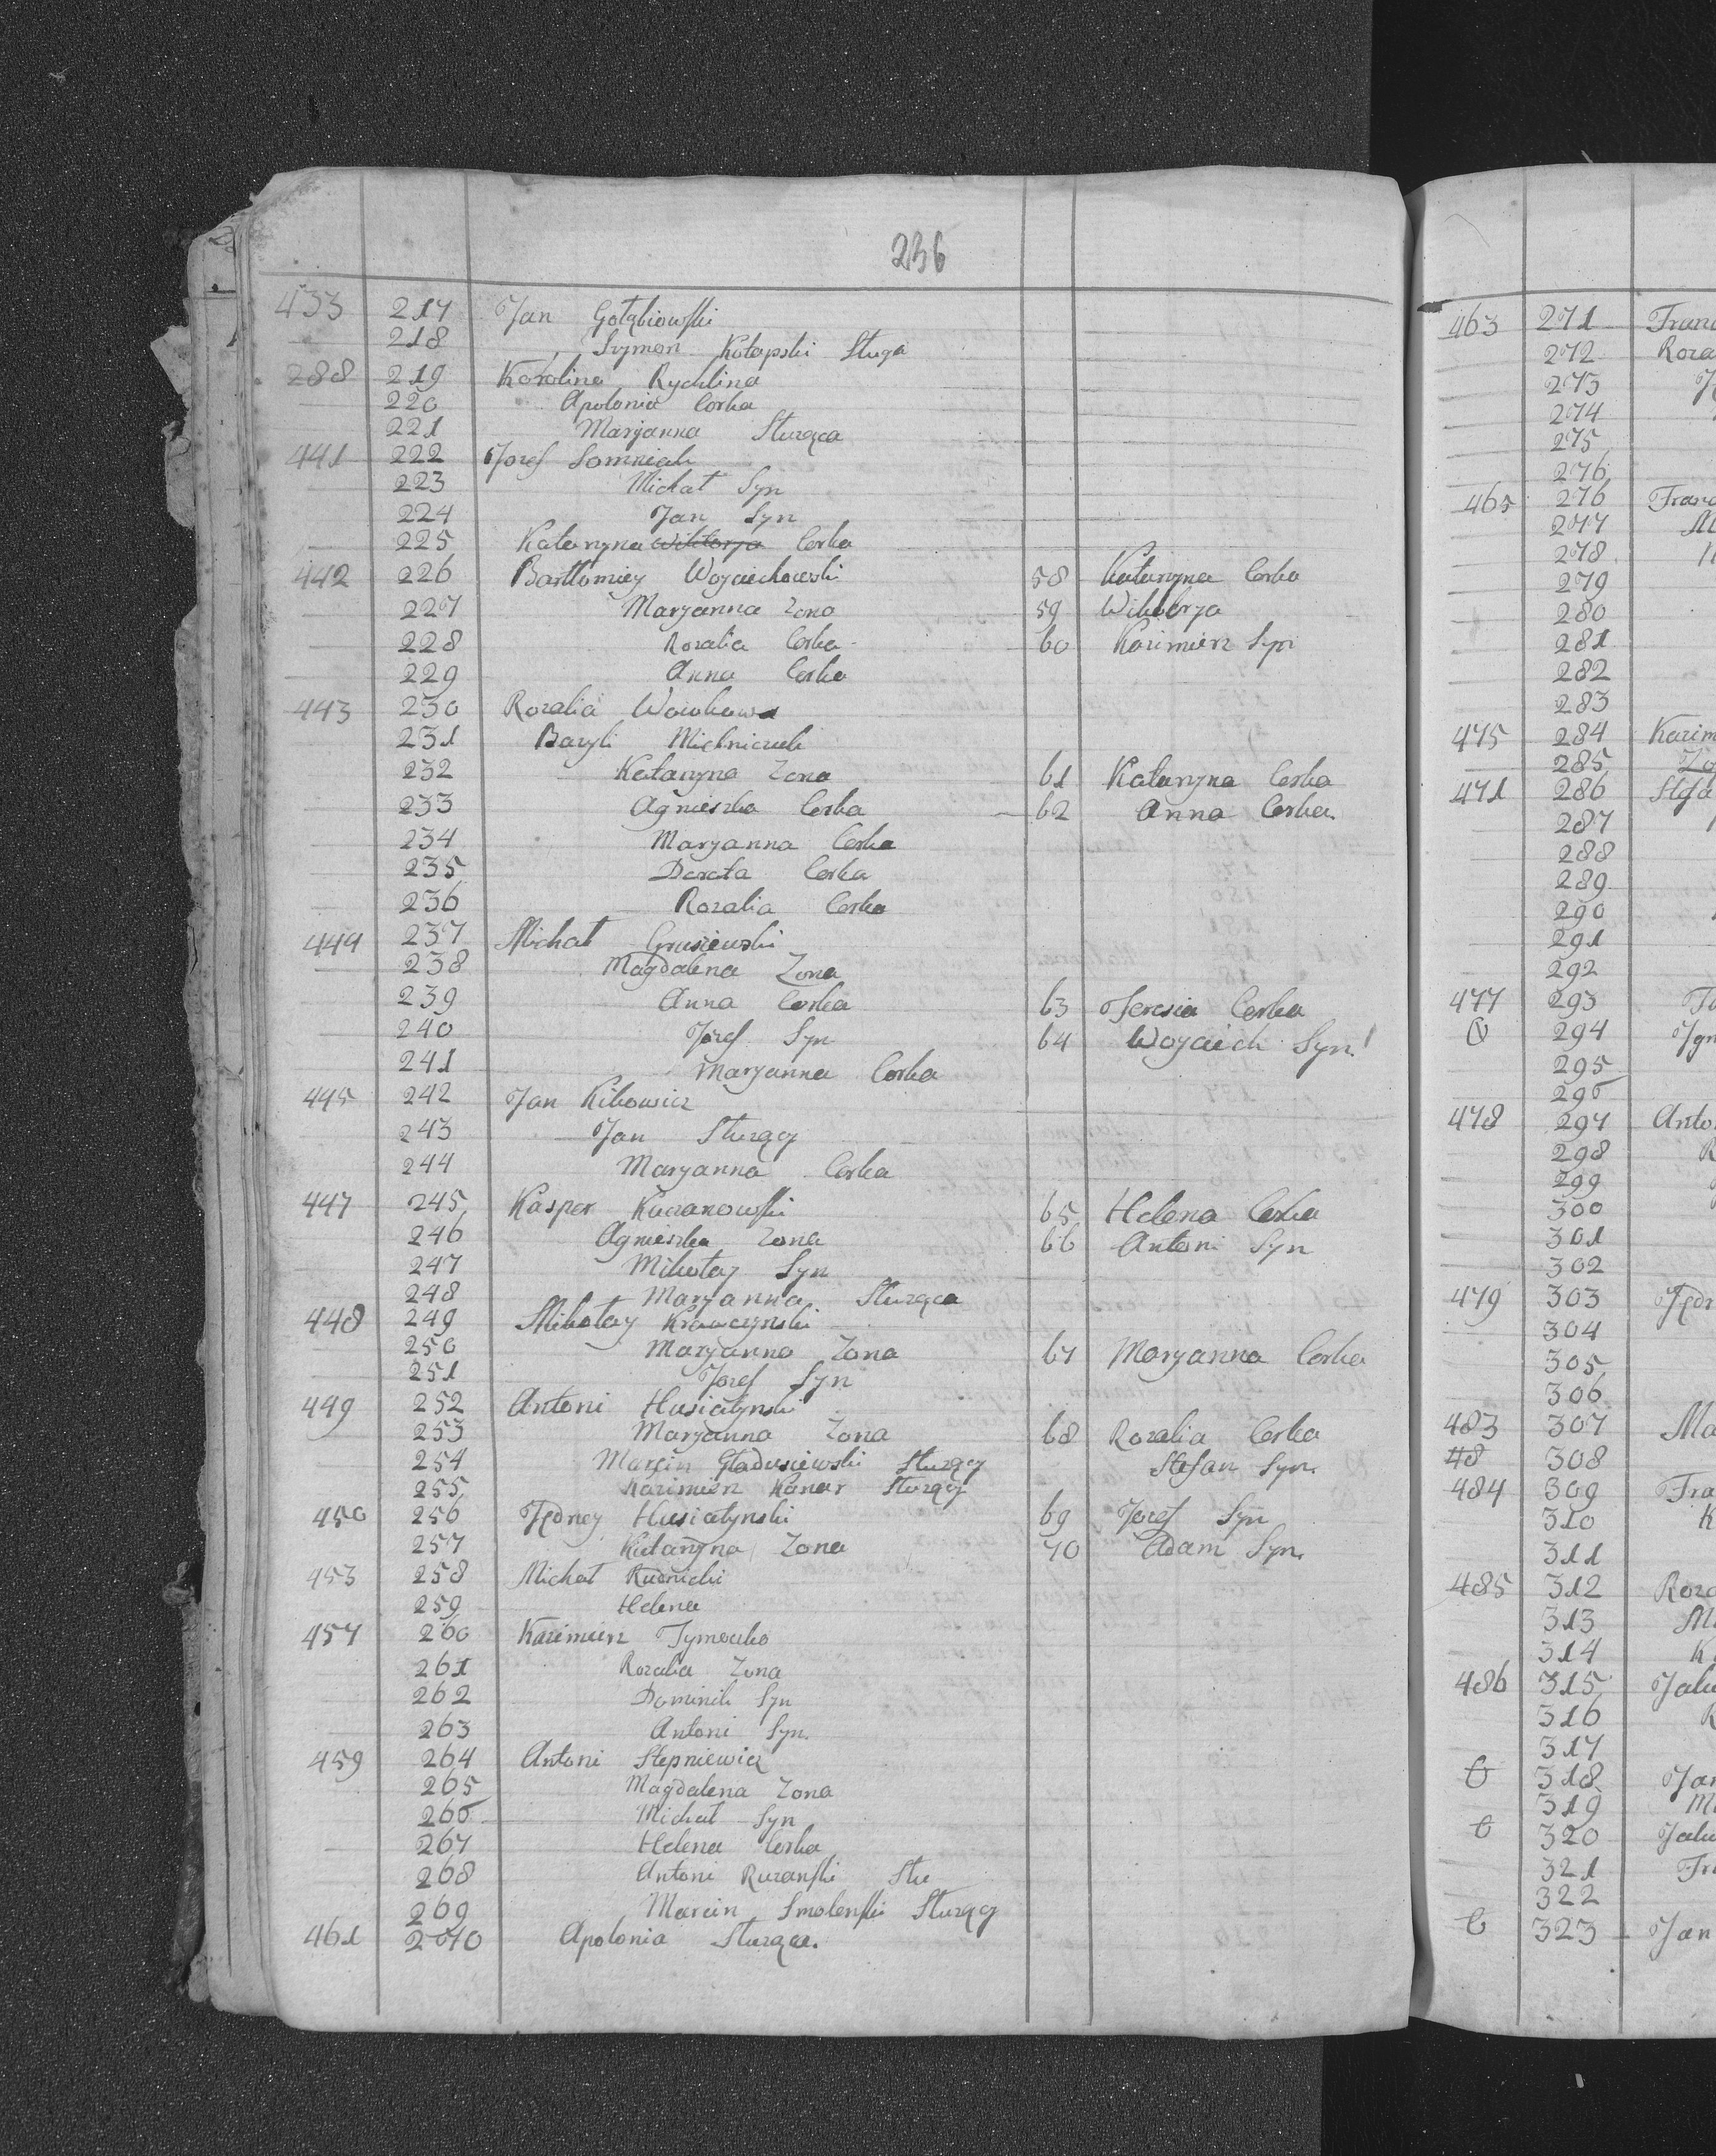 236
433 217 Jan Gołąbiowski
218 Szymon Kołapski Sługa
288 219 Karolina Rychlina
220 Apolonia Corka
221 Maryanna Służąca
441 222 Jozef Somniak
223 Michał Syn
224 Jan Syn
225 Katarzyna Wiktorja Corka
442 226 Bartłomiey Wojciechowski 58 Katarzyna Corka
227 Maryanna Zona 59 Wiktorja
228 Rozalia Corka 60 Kazimierz Syn
229 Anna Corka
443 230 Rozalia
231 Bazyli Mielniczuk
232 Katarzyna Zona 61 Katarzyna Corka
233 Agnieszka Corka 62 Anna Corka
234 Maryanna Corka
235 Dorota Corka
236 Rozalia Corka
444 237 Michał Grusiewski
238 Magdalena Zona
239 Anna Corka 63 Teresia Corka
240 Jozef Syn 64 Wojciech Syn
241 Maryanna Corka
445 242 Jan Kibowicz
243 Jan Służący
244 Maryanna Corka
447 245 Kasper 65 Helena Corka
246 Agnieszka Zona 66 Antoni Syn
247 Mikołay Syn
248 Maryanna Służąca
448 249 Mikołay Krawczynski
250 Maryanna Zona 67 Maryanna Corka
251 Jozef Syn
449 252 Antoni Husiatynski
253 Maryanna Zona 68 Rozalia Corka
254 Marcin Gładusiewski Służący Stefan Syn
255 Kazimierz Kanar Służący
450 256 Jędrzey Husiatynski 69 Jozef Syn
257 Katarzyna Zona 70 Adam Syn
453 258 Michał Rudnicki
259 Helena
457 260 Kazimierz Tymoczko
261 Rozalia Zona
262 Dominik Syn
263 Antoni Syn
459 264 Antoni Stepniewicz
265 Magdalena Zona
266 Michał Syn
267 Helena Corka
268 Antoni Ruzanski Słu
269 Marcin Smolenski Służący
461 270 Apolonia Służąca
463 271 Franc
272 Roza
273
274
275
276
465 276 Franc
277 M
278
279
280
281
282
283
475 284 Kazim
285 Zo
471 286 Stefa
287
288
289
290
291
292
477 293
294 Ign
295
296
478 297 Anto
298 R
299
300
301
302
479 303 Jędr
304
305
306
483 307 Ma
48 308
484 309 Fra
310 K
311
485 312 Roza
313 Ma
314 K
486 315 Jaku
316 R
317
318 Jan
319 M
320 Jaku
321 Fr
322
323 Jan